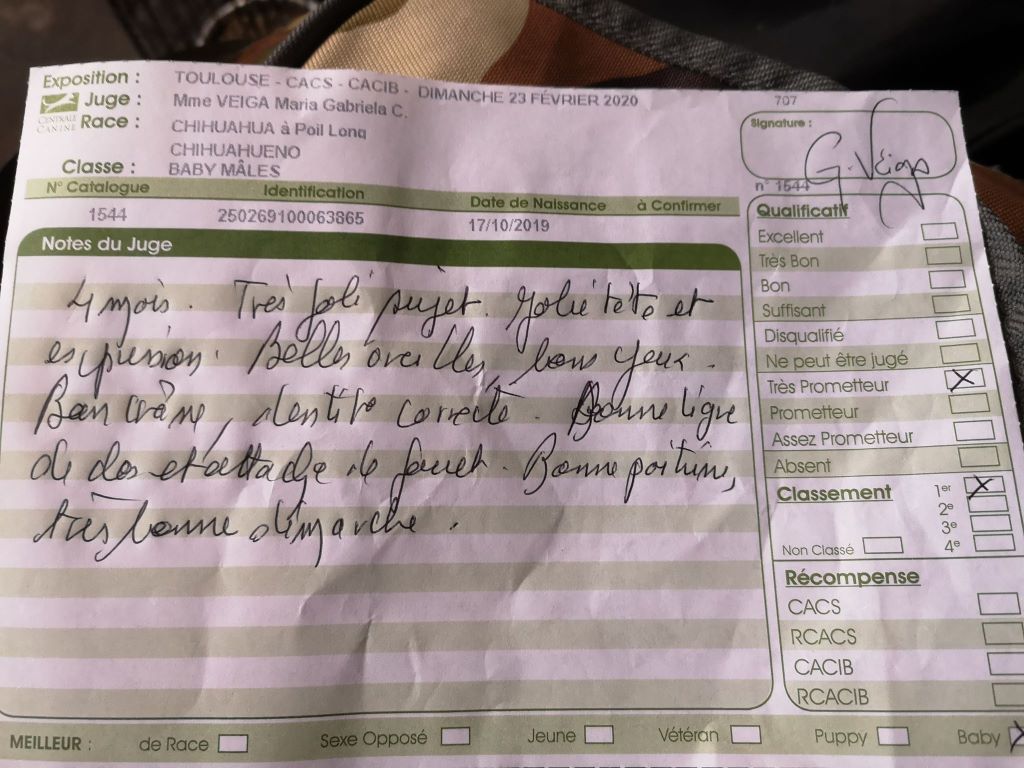 Exposition : TOULOUSE - CACS - CACIB - DIMANCHE 23 FÉVRIER 2020
Juge : Mme VEIGA Maria Gabriela C.
CENTRALE CANINE
Race : CHIHUAHUA à Poil Long
CHIHUAHUENO
Classe : BABY MÂLES
N° Catalogue Identification Date de Naissance à Confirmer
1544 250269100063865 17/10/2019
Notes du Juge
4 mois. Très joli sujet. Jolie tête et
expression. Belles oreilles, bons yeux.
Bon crâne, dentité correcte. Bonne ligne
de dos et attache de fouet. Bonne poitrine,
très bonne démarche.
707
Signature :
G. Veiga
n° 1544
Qualificatif
Excellent
Très Bon
Bon
Suffisant
Disqualifié
Ne peut être jugé
Très Prometteur X
Prometteur
Assez Prometteur
Absent
Classement 1er X
2e
3e
Non Classé 4e
Récompense
CACS
RCACS
CACIB
RCACIB
MEILLEUR : de Race Sexe Opposé Jeune Vétéran Puppy Baby X